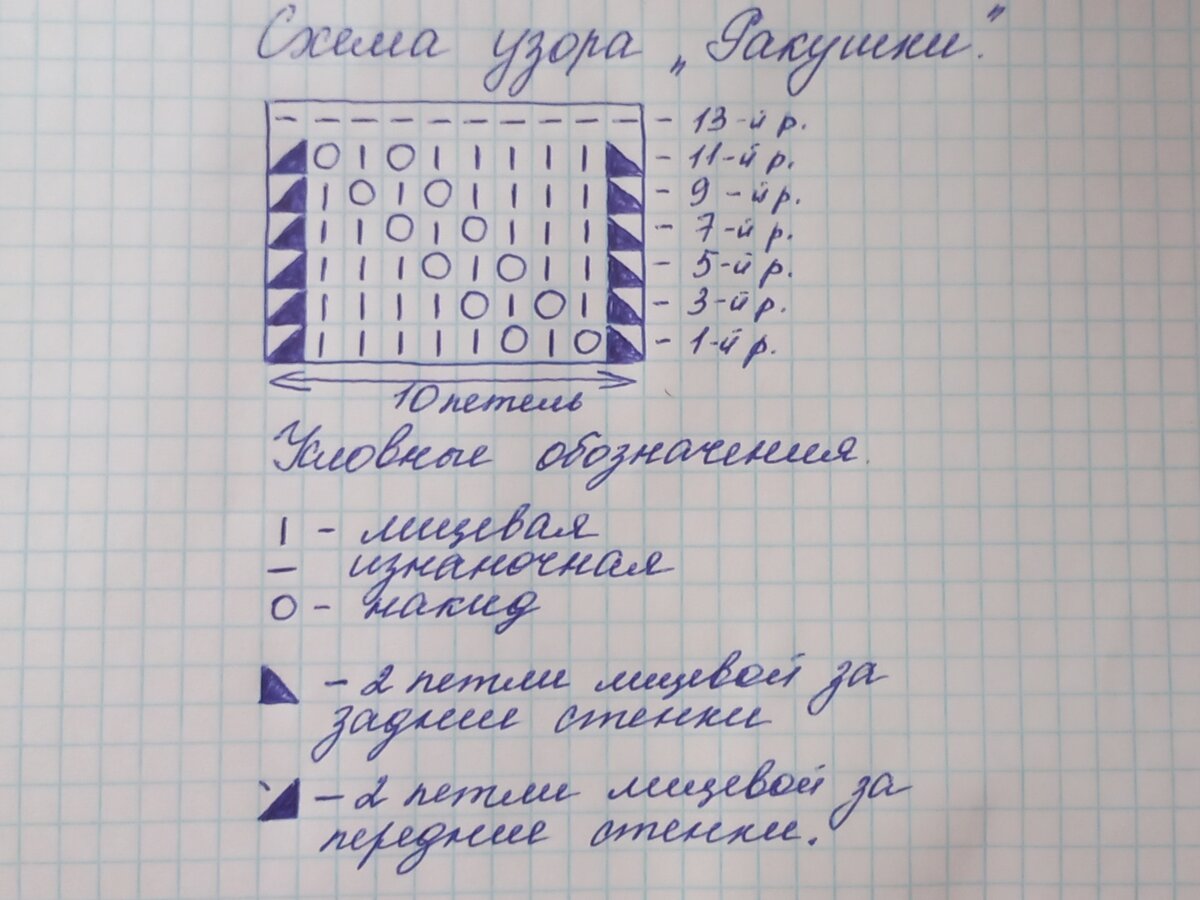 Схема узора „Ракушки."
– – – – – – – – – – – 13-й р.
◢ O I O I I I I I ◣ – 11-й р.
◢ I O I O I I I I ◣ – 9-й р.
◢ I I O I O I I I ◣ – 7-й р.
◢ I I I O I O I I ◣ – 5-й р.
◢ I I I I O I O I ◣ – 3-й р.
◢ I I I I I O I O ◣ – 1-й р.
10 петель
Условные обозначения.
I – лицевая
– изнаночная
O – накид
◣ – 2 петли лицевой за
задние стенки
◢ – 2 петли лицевой за
передние стенки.